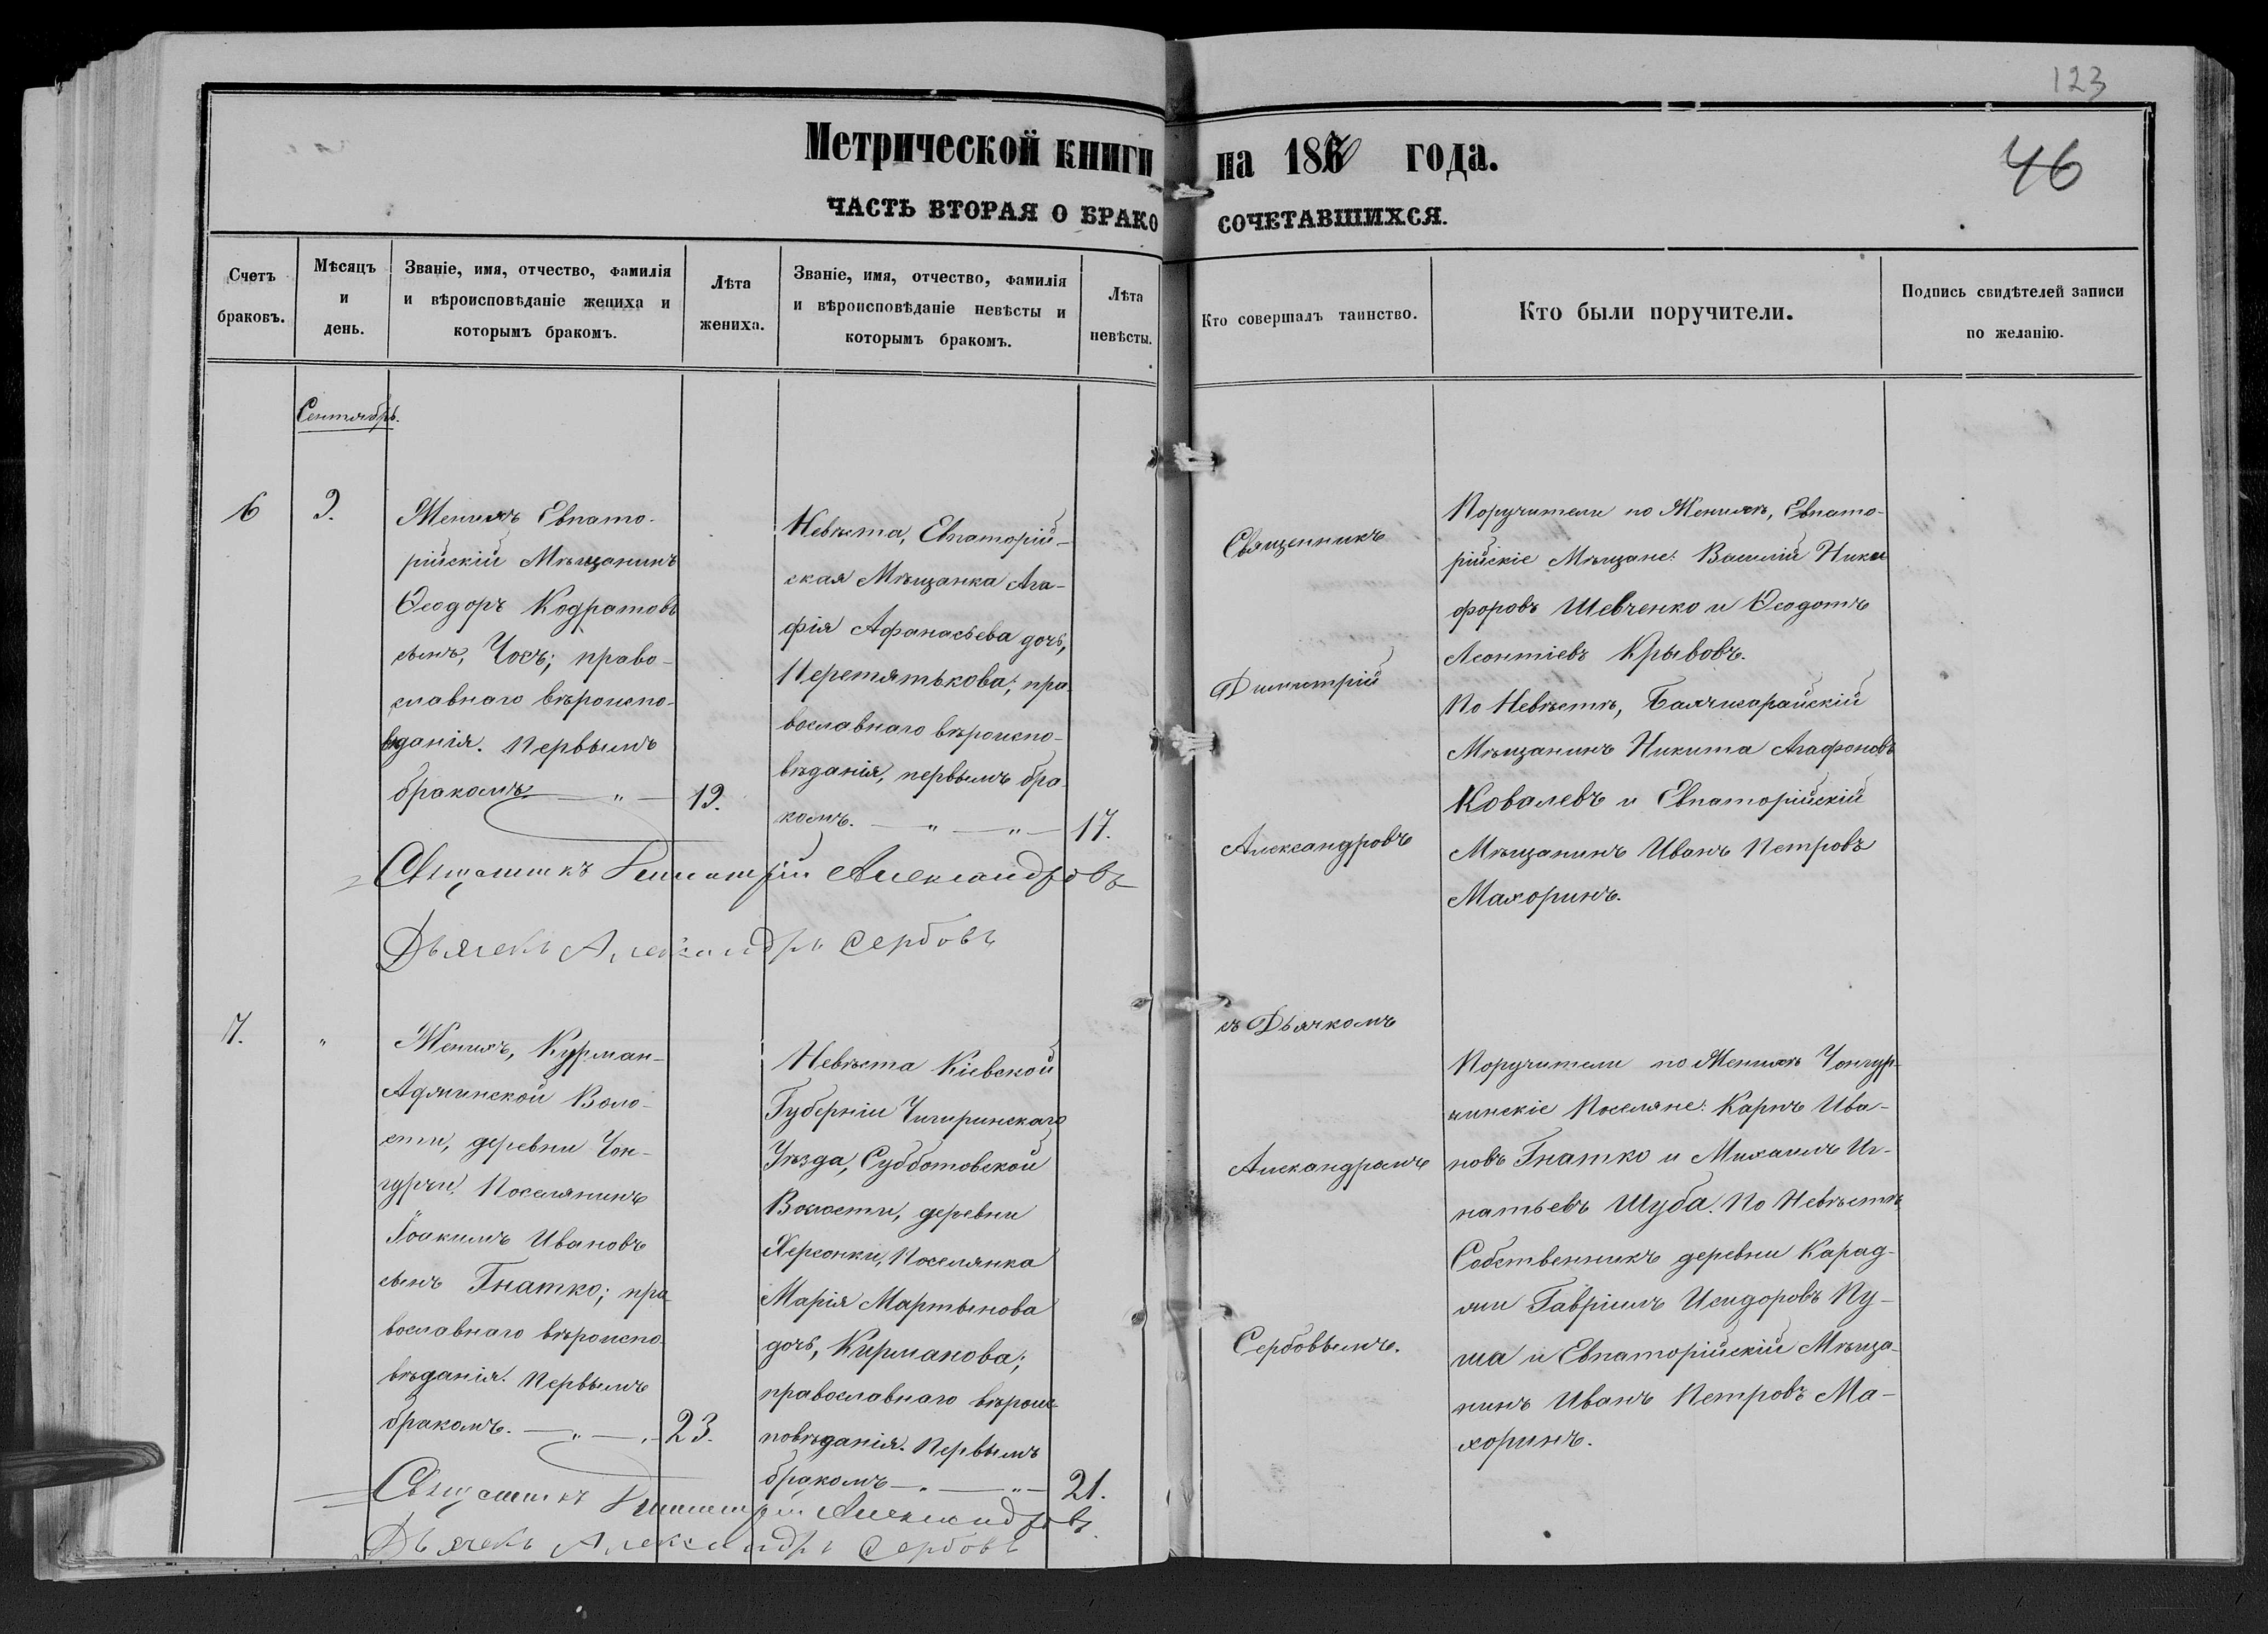 123
46
Метрической книги на 1870 года.
ЧАСТЬ ВТОРАЯ О БРАКОСОЧЕТАВШИХСЯ.
Счетъ
браковъ.
Мѣсяцъ
и
день.
Званіе, имя, отчество, фамилія
и вѣроисповѣданіе жениха и
которымъ бракомъ.
Лѣта
жениха.
Званіе, имя, отчество, фамилія
и вѣроисповѣданіе невѣсты и
которымъ бракомъ.
Лѣта
невѣсты.
Кто совершалъ таинство.
Кто были поручители.
Подпись свидѣтелей записи
по желанію.
Сентябрь.
6
9.
Женихъ Евпато-
рійскій Мѣщанинъ
Ѳеодоръ Кодратовъ
сынъ, Чохъ; право-
славнаго вѣроиспо-
вѣданія. Первымъ
бракомъ. — „ —
19.
Невѣста, Евпаторій-
ская Мѣщанка Ага-
фія Афанасьева дочь,
Перетятькова; пра-
вославнаго вѣроиспо-
вѣданія, первымъ бра-
комъ. — „ — „ —
17.
Священникъ
Димитрій
Александровъ
съ Дьячкомъ
Александромъ
Сербовымъ.
Поручители по Женихѣ, Евпато-
рійскіе Мѣщане: Василій Ники
форовъ Шевченко и Ѳеодотъ
Леонтіевъ Крывовъ.
По Невѣстѣ, Бахчисарайскій
Мѣщанинъ Никита Агафоновъ
Ковалевъ и Евпаторійскій
Мѣщанинъ Иванъ Петровъ
Махоринъ.
Священникъ Димитрій Александровъ
Дьячекъ Александръ Сербовъ
7.
„
Женихъ, Курман-
Аджинской Воло-
сти, деревни Чон-
гурчи, Поселянинъ
Іоакимъ Ивановъ
сынъ Гнатко; пра-
вославнаго вѣроиспо-
вѣданія. Первымъ
бракомъ. — „ — „ —
23.
Невѣста Кіевской
Губерніи Чигиринскаго
Уѣзда, Субботовской
Волости, деревни
Херсонки, Поселянка
Марія Мартынова
дочь, Кирманова;
православнаго вѣроис-
повѣданія. Первымъ
бракомъ — „ — „ —
21.
Поручители по Женихѣ Чонгур-
чинскіе Поселяне: Карпъ Ива-
новъ Гнатко и Михаилъ Иг-
натьевъ Шуба. По Невѣстѣ
Собственникъ деревни Карад-
жи Гавріилъ Исидоровъ Пу-
ша и Евпаторійскій Мѣща-
нинъ Иванъ Петровъ Ма-
хоринъ.
Священникъ Димитрій Александровъ
Дьячекъ Александръ Сербовъ